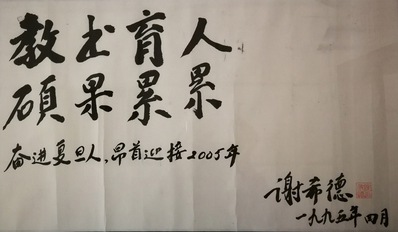 教书育人
硕果累累
奋进复旦人,昂首迎接2005年
谢希德
一九九五年四月